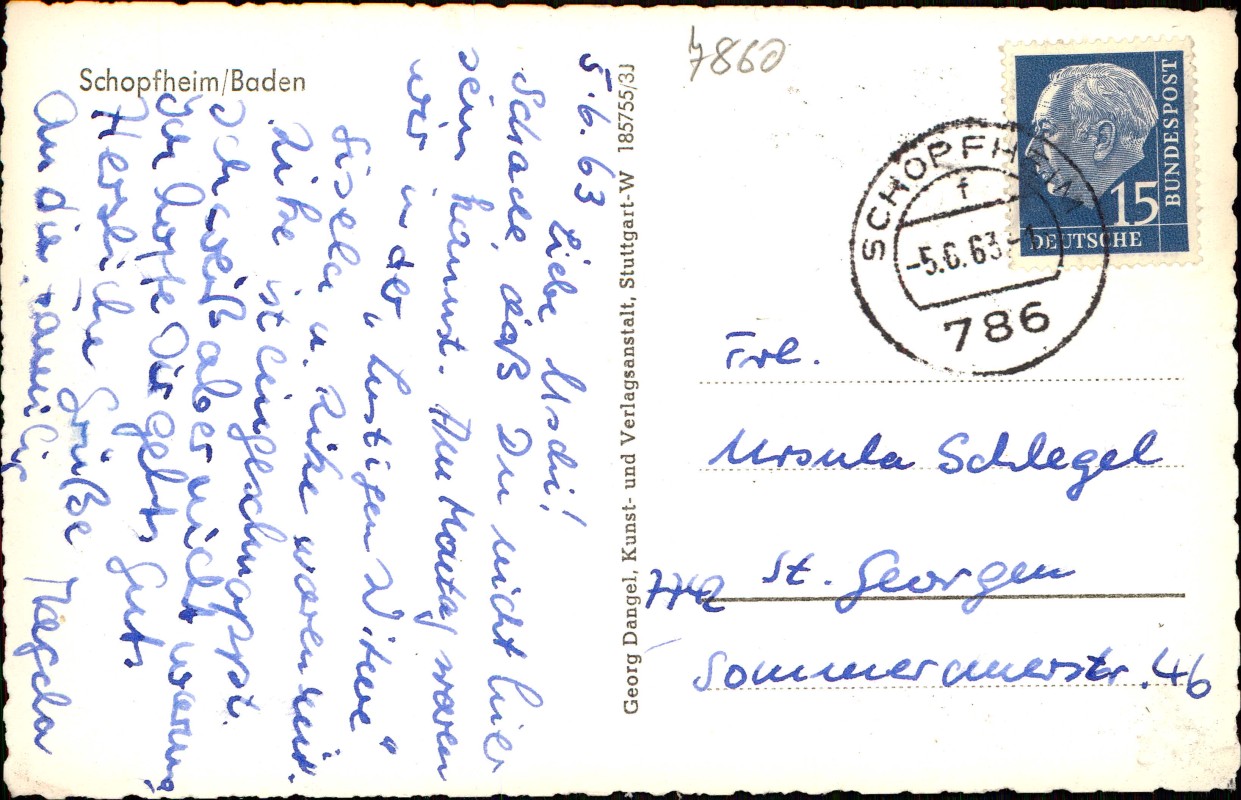 Schopfheim/Baden
5.6.63
Liebe Uschi!
Schade, daß Du nicht hier
sein kannst. Am Montag waren
wir in der „Lustigen Witwe“
Gisela u. Rike waren mit.
Rike ist eingeschnappt.
Ich weiß aber nicht warum,
Ich hoffe Dir gehts gut.
Herzliche Grüße
An die Familie
Georg Dangel, Kunst- und Verlagsanstalt, Stuttgart-W 185755/3J
7860
15
DEUTSCHE
BUNDESPOST
SCHOPFHEIM
f
-5.6.63-1
786
Frl.
Ursula Schlegel
742 St. Georgen
Sommerauerstr. 46